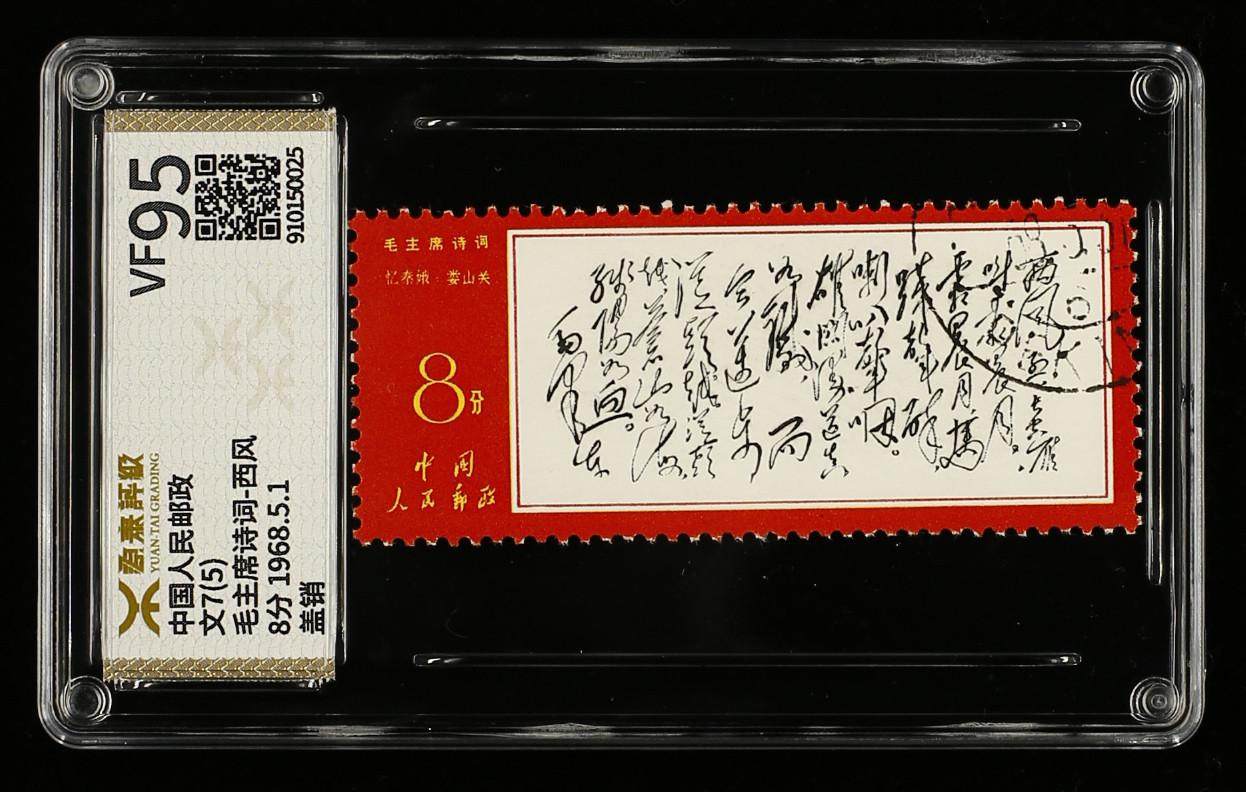 VF95
910150025
源泰評級
YUAN·TAI GRADING
中国人民邮政
文7(5)
毛主席诗词-西风
8分 1968.5.1
盖销
毛主席诗词
忆秦娥·娄山关
8分
中国
人民邮政
西风烈長空雁
叫霜晨月。
霜晨月馬
蹄聲碎
喇叭聲咽。
雄關漫道真
如鐵而
今邁步
從頭越從頭
越蒼山如海
殘陽如血。
毛澤東